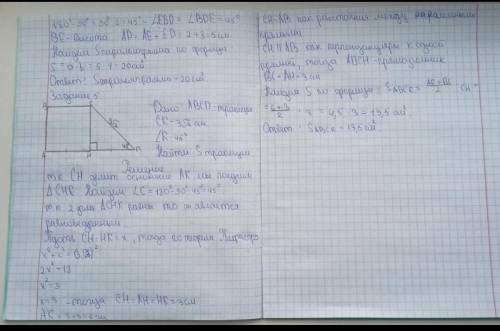 180°-90°=90°:2=45°-∠EBD=∠BDE=45°
BE-высота AD, AE+ED=2+3=5см
Найдём S параллелограмма по формуле
Ответ: Sпараллелограмма-20см²
Задание 5
Дано: ABCD-трапеция
CK-3√2 см
∠K-45°
Найти S трапеции
3√2
A H
Решение
т.к CH делит основание AK мы получим
ΔCHK. Найдём ∠C=180°-90°-45°=45°
т.к 2 угла ΔCHK равны то он является
равнобедренным
Пусть CH-HK=x, тогда по теореме Пифагора
x²+x²=(3√2)²
2x²=18
x²=9
x=3 -тогда CH-AH=HK=3см
AK=3+3=6см
CH=AB как расстояния между параллельными
прямыми
CH∥AB как перпендикуляры к одной
прямой, тогда ABCH-прямоугольник
BC-AH=3см
Найдём S по формуле: SABCK=AK+BC/2 · CH=
=6+3/2 · 3=4,5·3=13,5см²
Ответ: SABCK=13,5см²